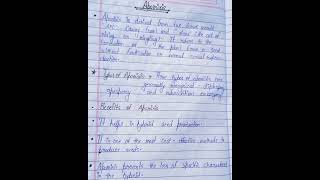 Apomixis
Apomixis is derived from two Greek words
"Apo" (away from) and "mixis" (the act of
mixing or mingling). It refers to the
of the plant from a seed
without fertilization or normal sexual reprod-
uction.
* Types of Apomixis → Four types of apomixis are
generally recognised - diplospory,
apospory and adventitious embryony.
Benefits of Apomixis
It helps in hybrid seed production.
It is one of the most cost-effective methods to
produce seeds.
Apomixis prevents the loss of specific characters
in the hybrid.